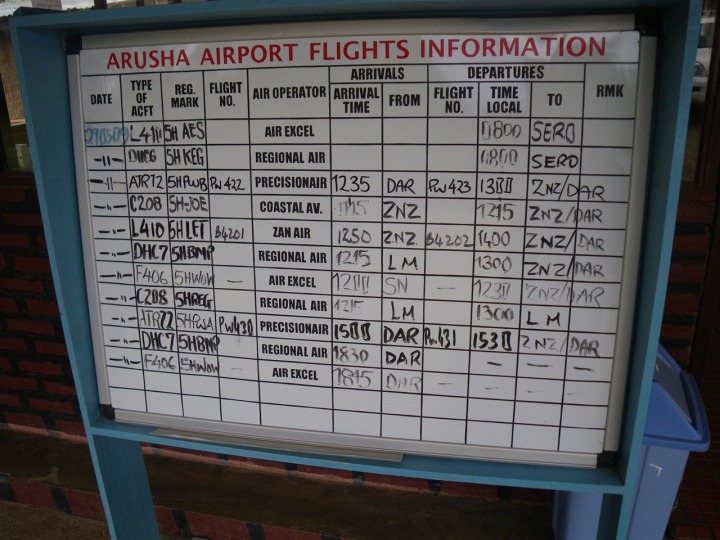 ARUSHA AIRPORT FLIGHTS INFORMATION
ARRIVALS DEPARTURES
DATE TYPE OF ACFT REG. MARK FLIGHT NO. AIR OPERATOR ARRIVAL TIME FROM FLIGHT NO. TIME LOCAL TO RMK
L410 5H AES AIR EXCEL 0800 SERO
-"- DHC6 5H KEG REGIONAL AIR 0800 SERO
-"- ATR72 5HPWB PW422 PRECISIONAIR 1235 DAR PW423 1300 ZNZ/DAR
-"- C208 5H-JOE COASTAL AV. ZNZ 1215 ZNZ/DAR
-"- L410 5H LET B4201 ZAN AIR 1250 ZNZ B4202 1400 ZNZ/DAR
-"- DHC7 5HBMP REGIONAL AIR 1215 LM 1300 ZNZ/DAR
-"- F406 5HWOW — AIR EXCEL 1200 SN — 1230 ZNZ/DAR
-"- C208 5HREG REGIONAL AIR 1215 LM 1300 LM
-"- ATR72 5HPWA PW430 PRECISIONAIR 1500 DAR PW431 1530 ZNZ/DAR
-"- DHC7 5HBMP REGIONAL AIR 1830 DAR — — —
-"- F406 5HWOW AIR EXCEL 1815 DAR — — —